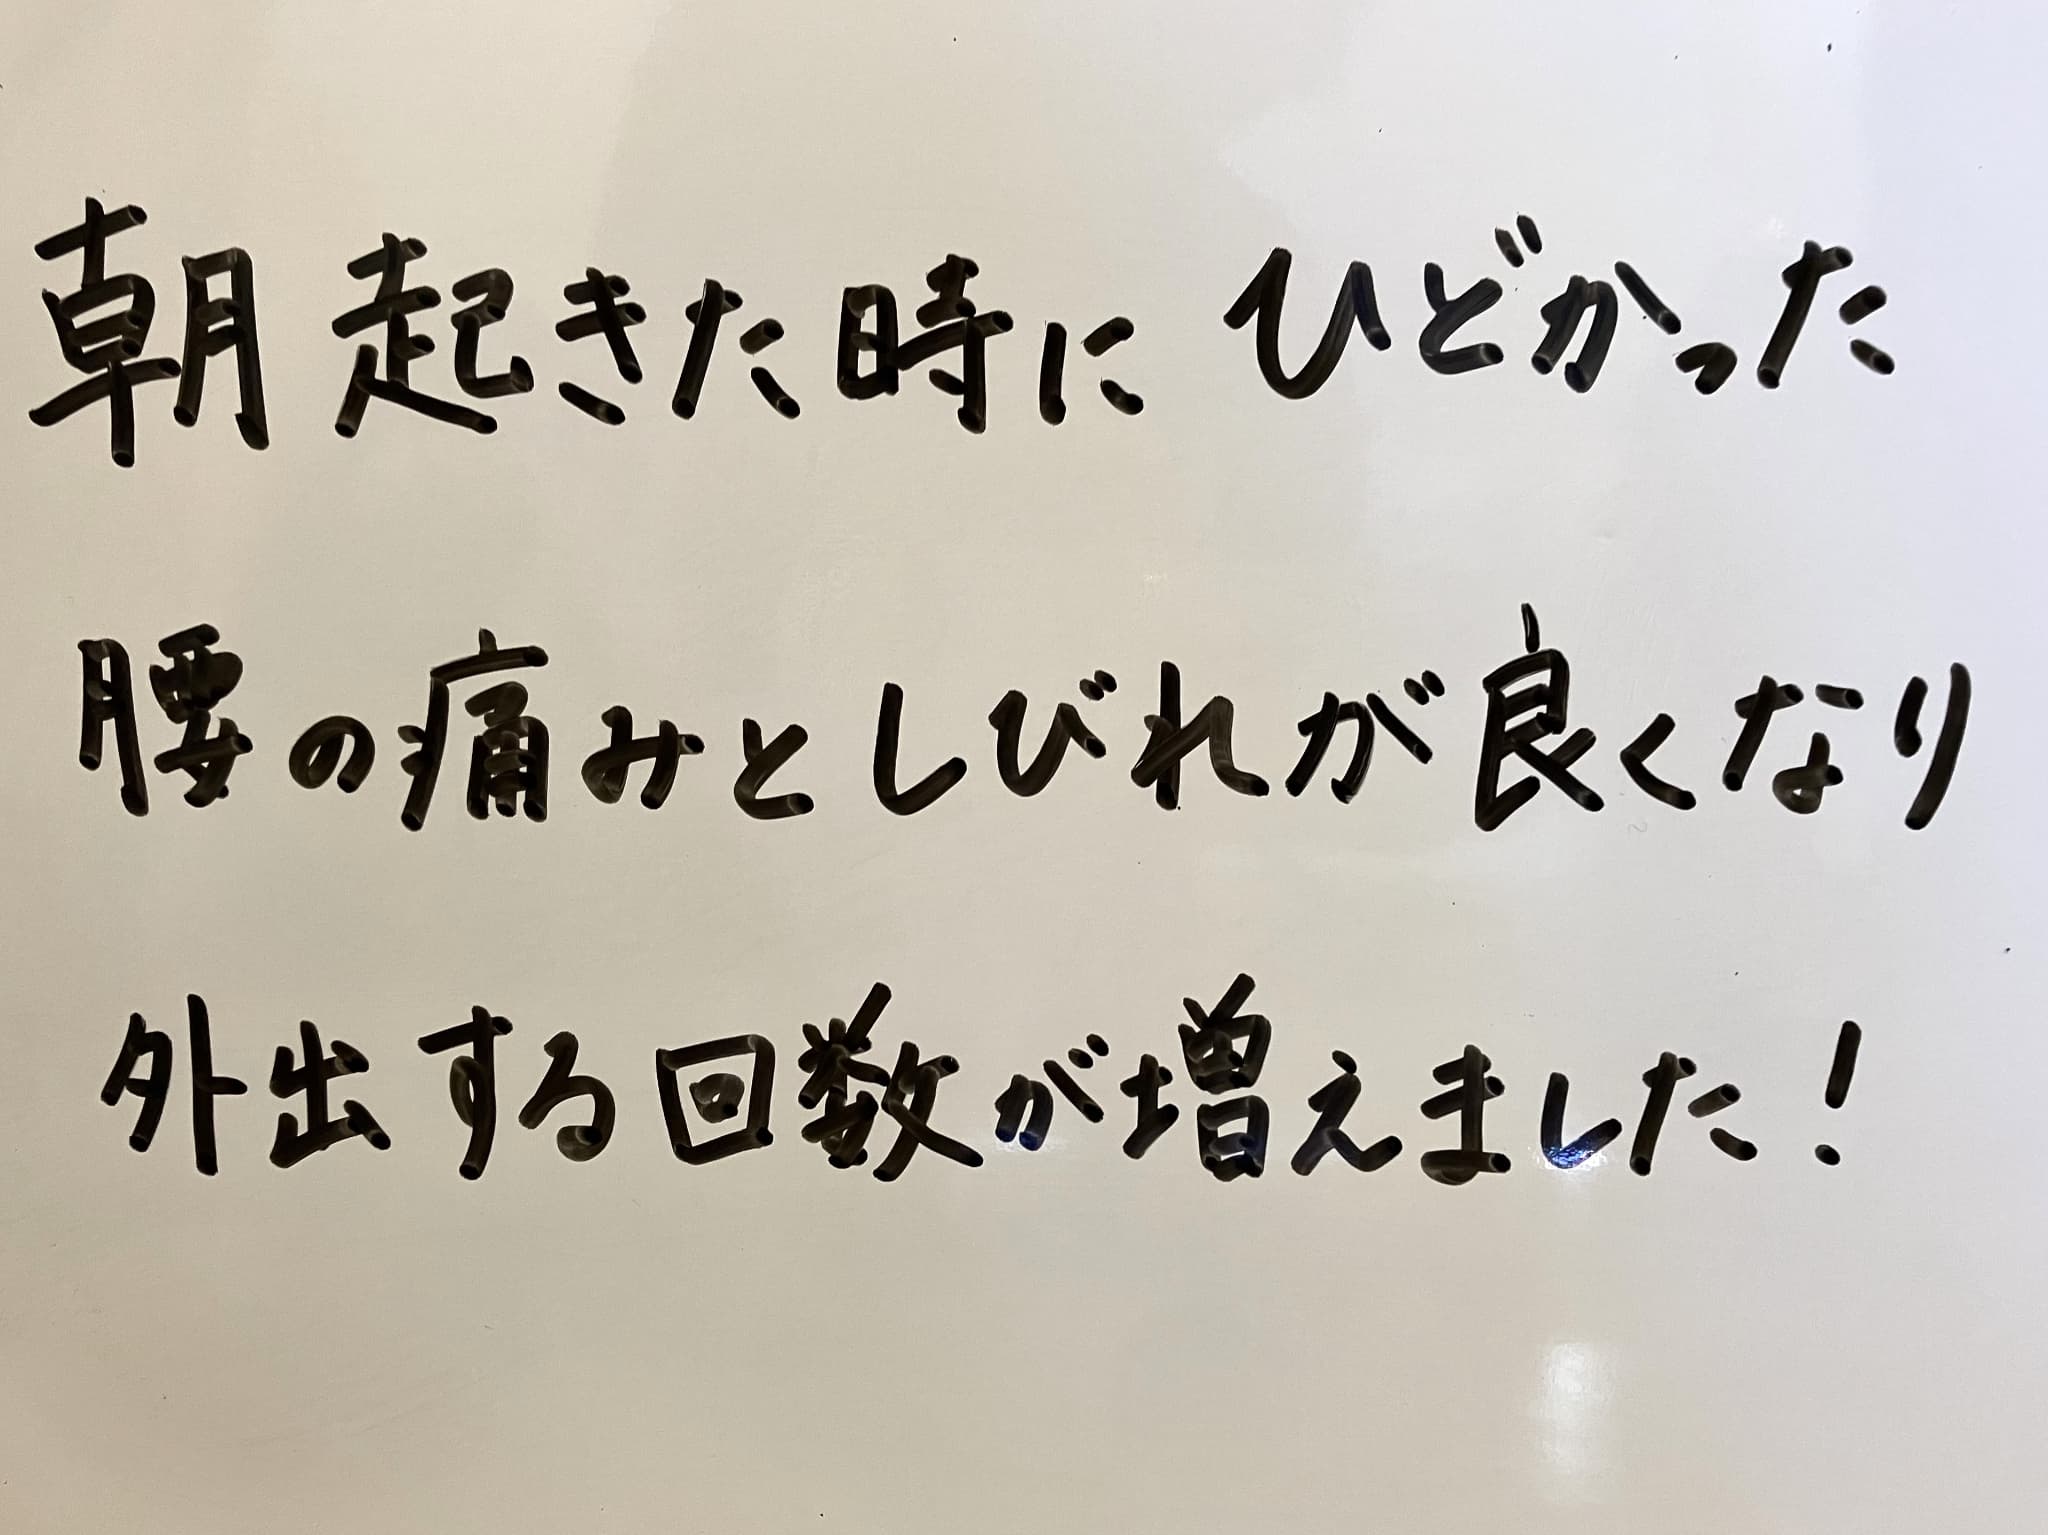 朝起きた時にひどかった
腰の痛みとしびれが良くなり
外出する回数が増えました!